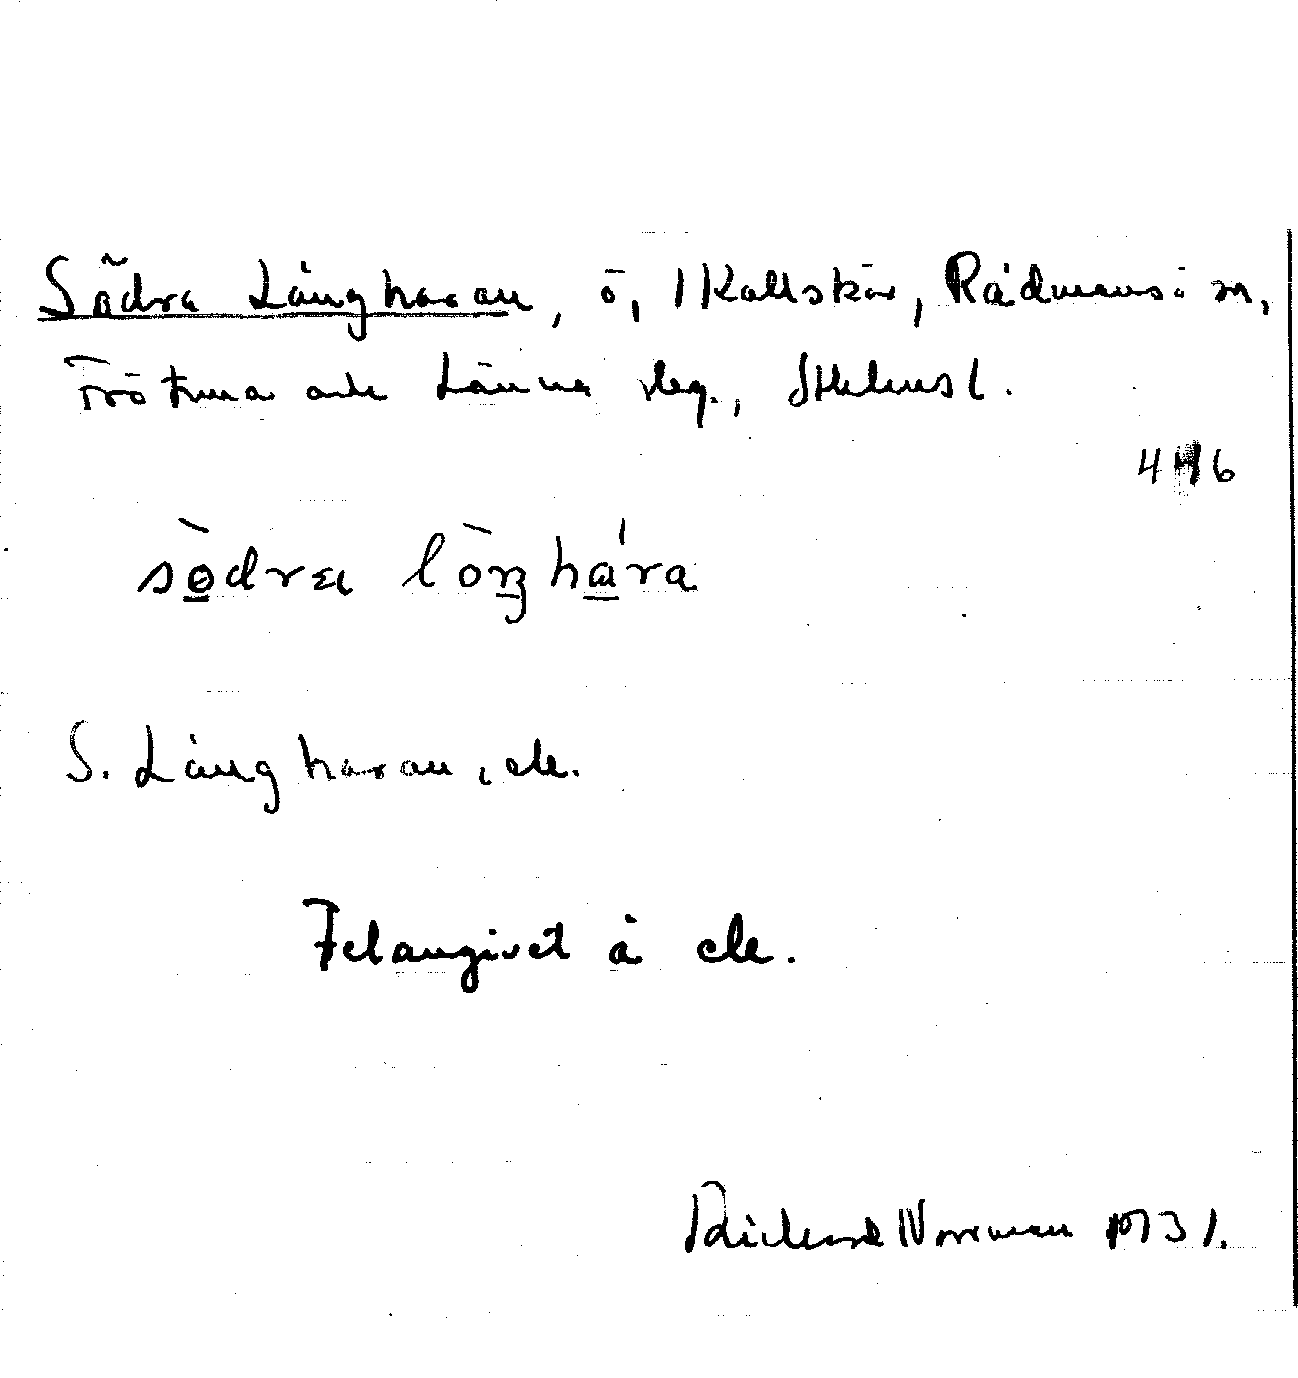 Södra Långharan, ö, Kallskär, Rådmansö sn,
Frötuna och Länna skg., Sthlms l.
södra lòŋhára
S. Långharan, ek.
Felangivet å ek.
Richard Norrman 1931.